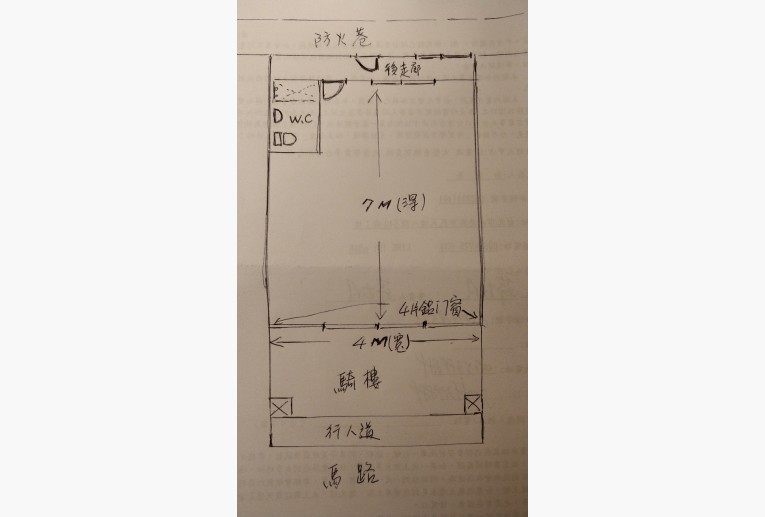 防火巷
後走廊
W.C
7M(深)
4片鋁门窗
4M(寬)
騎樓
行人道
馬路